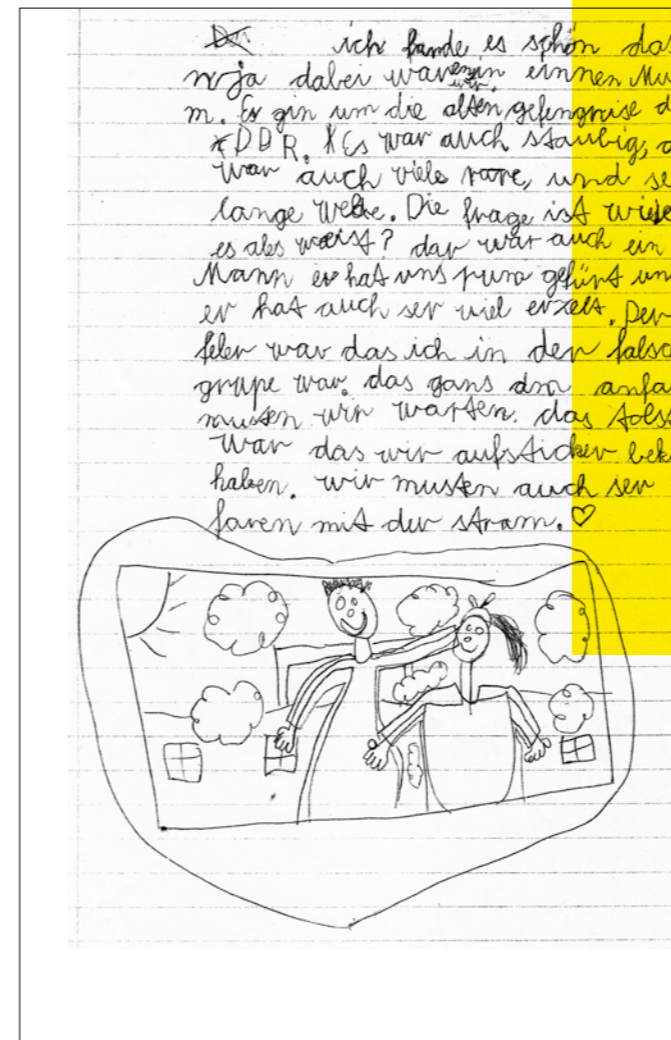 ich fande es schön das
wja dabei waren in einnen Mu
wir.
m. Es gin um die alten gefengnise d
DDR. Es war auch staubig, d
war auch viele rore, und se
lange Welte. Die frage ist wiso
es ales weist? dar war auch ein
Mann er hat uns rum gefürt un
er hat auch ser viel erzelt. Der
feler war das ich in der falsc
grupe war. das gans dra anfa
musten wir warten. das tolst
war das wir aufsticker bek
haben. wir musten auch ser
faren mit der stram.